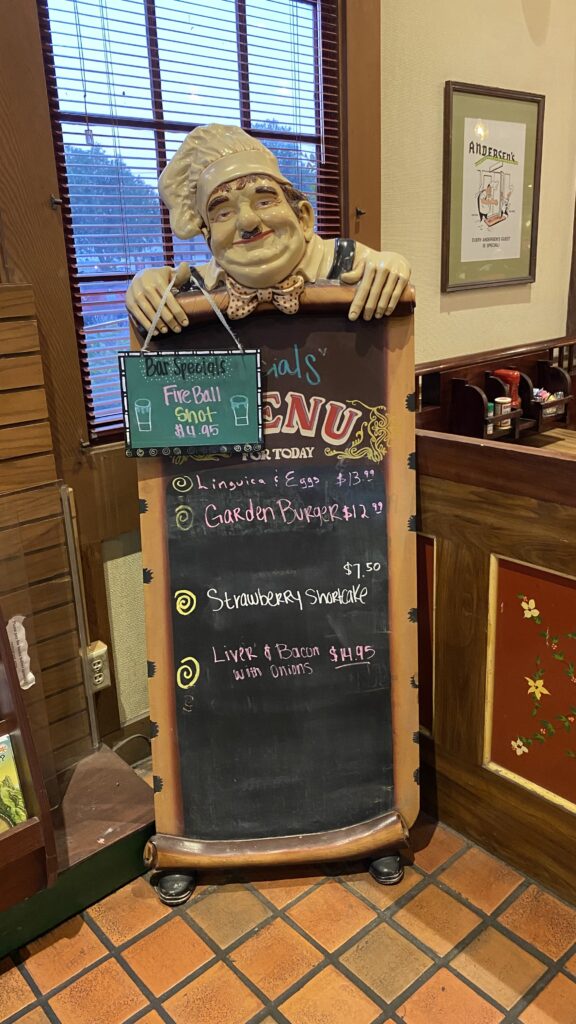 ANDERSEN'S
EVERY ANDERSEN'S GUEST
IS SPECIAL!
Bar Specials
Fire Ball
Shot
$4.95
ials"
ENU
FOR TODAY
Linguica & Eggs $13.99
Garden Burger $12.99
$7.50
Strawberry Shortcake
Liver & Bacon $14.95
with onions